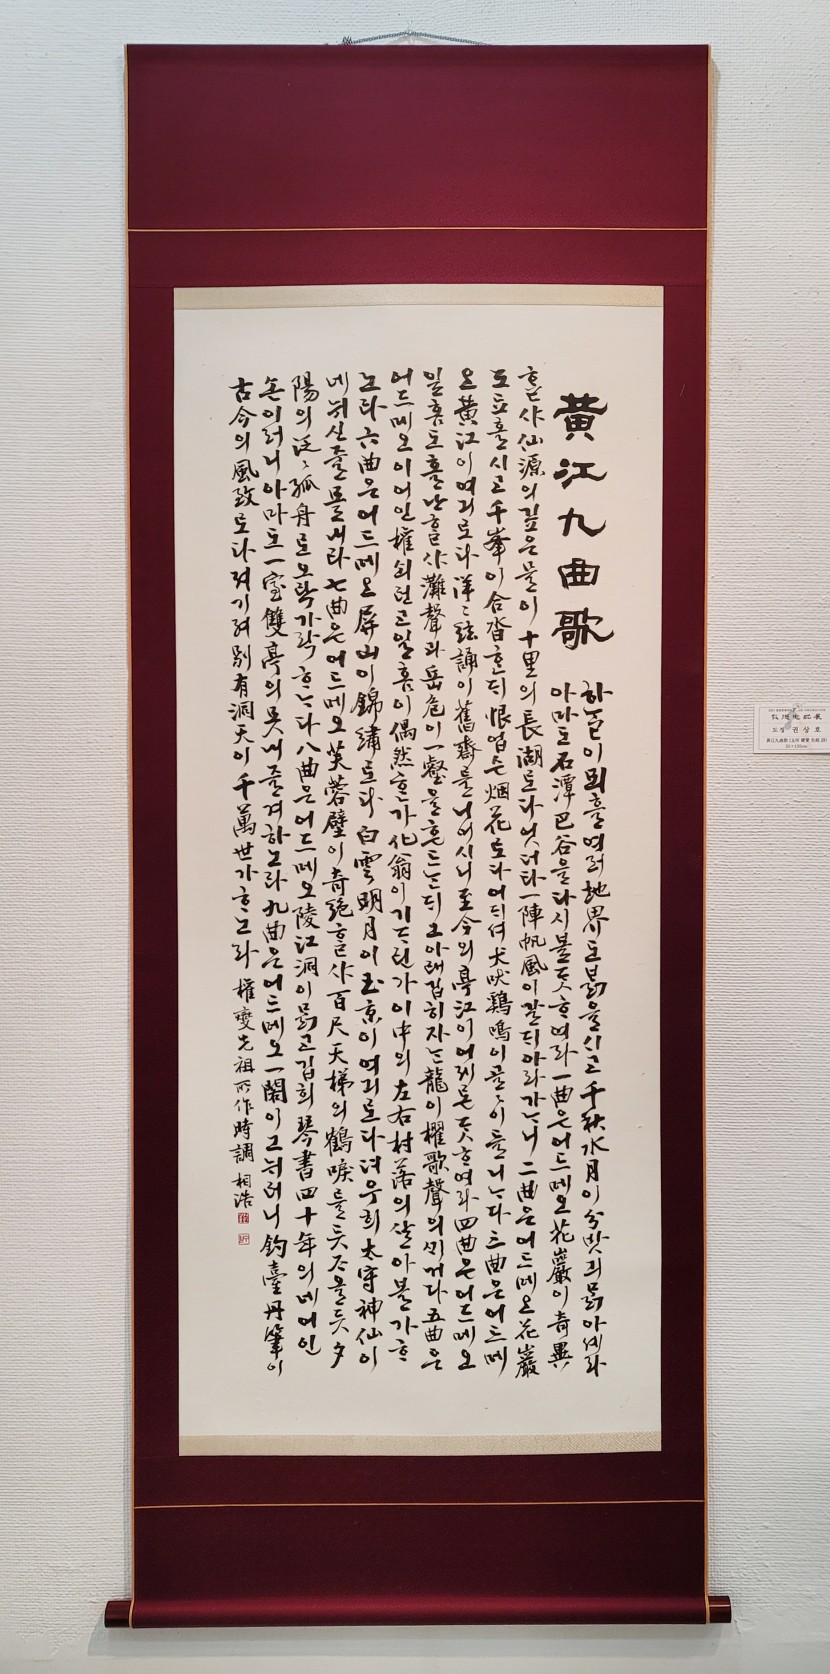 黃江九曲歌
하ᄂᆞᆯ이 뫼흘 여러 地界도 ᄇᆞᆰ을시고 千秋水月이 分밧긔 ᄆᆞᆰ아셰라
아마도 石潭巴谷을 다시 볼듯ᄒᆞ여라 一曲은 어드메오 花巖이 奇異
ᄒᆞᆯ샤 仙源의 깊은 믈이 十里의 長湖로다 엇더타 一陣帆風이 갈ᄃᆡ 아라가ᄂᆞ니 二曲은 어드메오 花巖
도 됴흘시고 千峯이 合沓ᄒᆞᆫᄃᆡ 恨업슨 烟花로다 어ᄃᆡ셔 犬吠鷄鳴이 골〻이 들니ᄂᆞ다 三曲은 어드메
오 黃江이 여긔로다 洋〻絃誦이 舊齋를 니어시니 至今의 亭江이 어제론듯ᄒᆞ여라 四曲은 어드메오
일홈도 홀난ᄒᆞᆯ샤 灘聲과 岳危이 一壑을 흔드ᄂᆞᆫᄃᆡ 그 아래 깁히 자ᄂᆞᆫ 龍이 櫂歌聲의 ᄭᆡ거다 五曲은
어드메오 이 어인 權쇠런고 일홈이 偶然ᄒᆞᆫ가 化翁이 기ᄃᆞ린가 이 中의 左右村落의 살아볼가 ᄒᆞ
노라 六曲은 어드메오 屛山이 錦繡로다 白雲明月이 玉京이 여긔로다 뎌 우희 太守神仙이
네 뉘신줄 몰내라 七曲은 어드메오 芙蓉璧이 奇絶ᄒᆞᆯ샤 百尺天梯의 鶴唳를 듯조올듯 夕
陽의 泛〻孤舟로 오락가락 ᄒᆞᄂᆞ다 八曲은 어드메오 陵江洞이 ᄆᆞᆰ고 깁희 琴書四十年의 네 어인
손이러니 아마도 一室雙亭의 못내 즐겨 하노라 九曲은 어드메오 一閣이 그 뉘러니 釣臺丹筆이
古今의 風致로다 져기 져 別有洞天이 千萬世가 ᄒᆞ노라 權燮先祖所作時調 相浩
도정 권상호